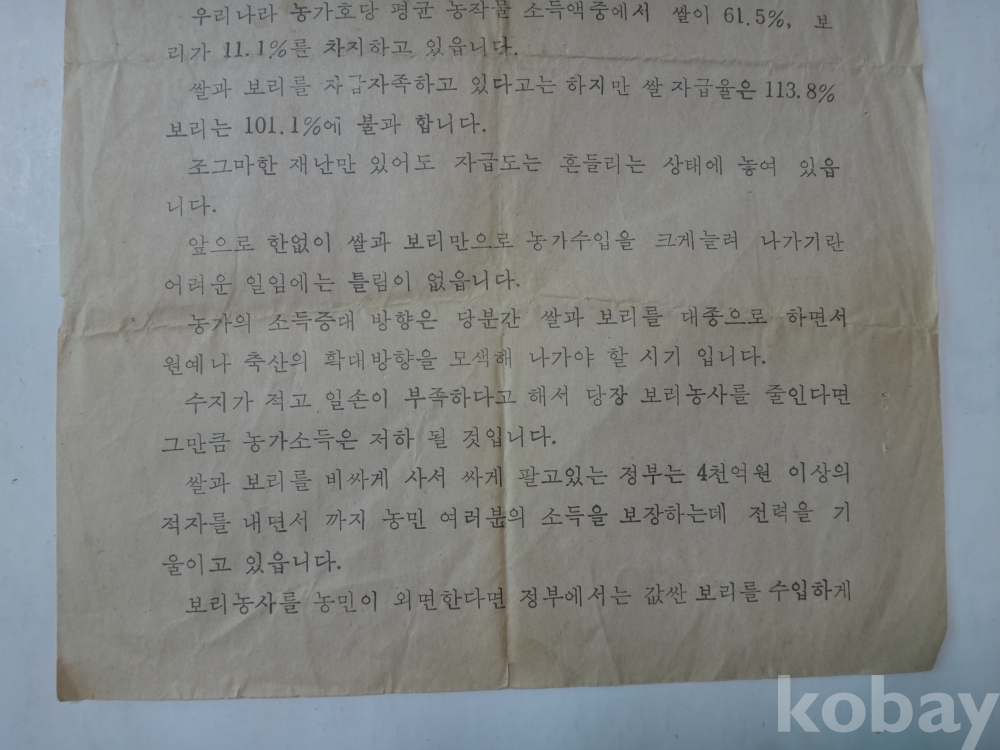 우리나라 농가호당 평균 농작물 소득액중에서 쌀이 61.5%, 보
리가 11.1%를 차지하고 있읍니다.
쌀과 보리를 자급자족하고 있다고는 하지만 쌀 자급율은 113.8%
보리는 101.1%에 불과 합니다.
조그마한 재난만 있어도 자급도는 흔들리는 상태에 놓여 있읍
니다.
앞으로 한없이 쌀과 보리만으로 농가수입을 크게늘려 나가기란
어려운 일임에는 틀림이 없읍니다.
농가의 소득증대 방향은 당분간 쌀과 보리를 대종으로 하면서
원예나 축산의 확대방향을 모색해 나가야 할 시기 입니다.
수지가 적고 일손이 부족하다고 해서 당장 보리농사를 줄인다면
그만큼 농가소득은 저하 될 것입니다.
쌀과 보리를 비싸게 사서 싸게 팔고있는 정부는 4천억원 이상의
적자를 내면서 까지 농민 여러분의 소득을 보장하는데 전력을 기
울이고 있읍니다.
보리농사를 농민이 외면한다면 정부에서는 값싼 보리를 수입하게
kobay